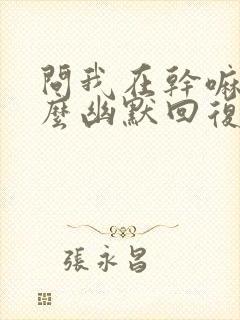 問我在幹嘛
麼幽默回復
張永昌